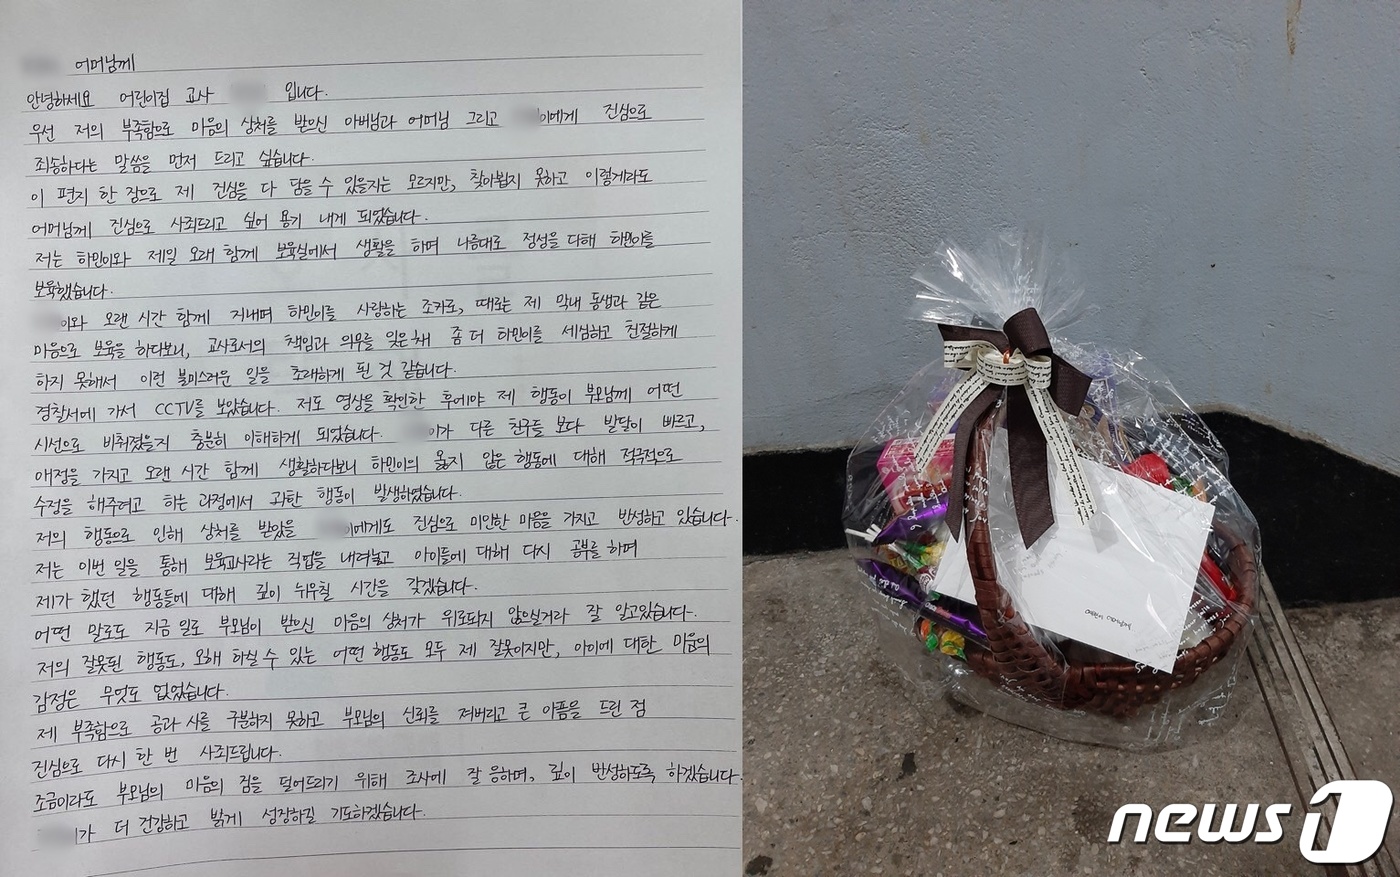 어머님께
안녕하세요 어린이집 교사 입니다.
우선 저의 부족함으로 마음의 상처를 받으신 아버님과 어머님 그리고 이에게 진심으로
죄송하다는 말씀을 먼저 드리고 싶습니다.
이 편지 한 장으로 제 진심을 다 담을 수 있을지는 모르지만, 찾아뵙지 못하고 이렇게라도
어머님께 진심으로 사죄드리고 싶어 용기 내게 되었습니다.
저는 하민이와 제일 오래 함께 보육실에서 생활을 하며 나름대로 정성을 다해 하민이를
보육했습니다.
이와 오랜 시간 함께 지내며 하민이를 사랑하는 조카로, 때로는 제 막내 동생과 같은
마음으로 보육을 하다보니, 교사로서의 책임과 의무를 잊은채 좀 더 하민이를 세심하고 친절하게
하지 못해서 이런 불미스러운 일을 초래하게 된 것 같습니다.
경찰서에 가서 CCTV를 보았습니다. 저도 영상을 확인한 후에야 제 행동이 부모님께 어떤
시선으로 비춰졌을지 충분히 이해하게 되었습니다. 이가 다른 친구들 보다 발달이 빠르고,
애정을 가지고 오랜 시간 함께 생활하다보니 하민이의 옳지 않은 행동에 대해 적극적으로
수정을 해주려고 하는 과정에서 과한 행동이 발생하였습니다.
저의 행동으로 인해 상처를 받았을 이에게도 진심으로 미안한 마음을 가지고 반성하고 있습니다.
저는 이번 일을 통해 보육교사라는 직업을 내려놓고 아이들에 대해 다시 공부를 하며
제가 했던 행동들에 대해 깊이 뉘우칠 시간을 갖겠습니다.
어떤 말로도 지금 일로 부모님이 받으신 마음의 상처가 위로되지 않으실거라 잘 알고있습니다.
저의 잘못된 행동도, 오해 하실 수 있는 어떤 행동도 모두 제 잘못이지만, 아이에 대한 미움의
감정은 무엇도 없었습니다.
제 부족함으로 공과 사를 구분하지 못하고 부모님의 신뢰를 져버리고 큰 아픔을 드린 점
진심으로 다시 한 번 사죄드립니다.
조금이라도 부모님의 마음의 짐을 덜어드리기 위해 조사에 잘 응하며, 깊이 반성하도록 하겠습니다.
가 더 건강하고 밝게 성장하길 기도하겠습니다.
news1